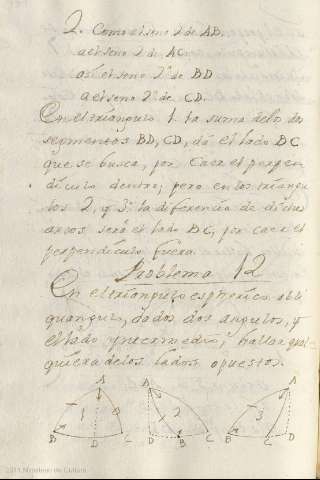 2. Como el seno 2º de AB.
a el seno 2º de AC.
asi el seno 2º de BD
a el seno 2º de CD.
En el triangulo 1. la suma delos dos
segmentos BD, CD, dá el lado BC
que se busca, por caer el perpen
diculo dentro; pero en los triangu
los 2, y 3º la diferencia de dichos
arcos será el lado BC, por caer el
perpendiculo fuera.
Problema 12
En el triangulo espherico obli
quangulo, dados dos angulos, y
el lado intermedio; hallar qual
quiera de los lados opuestos.
A A A
1 2 3
B D C D B C B C D
2011 Ministerio de Cultura